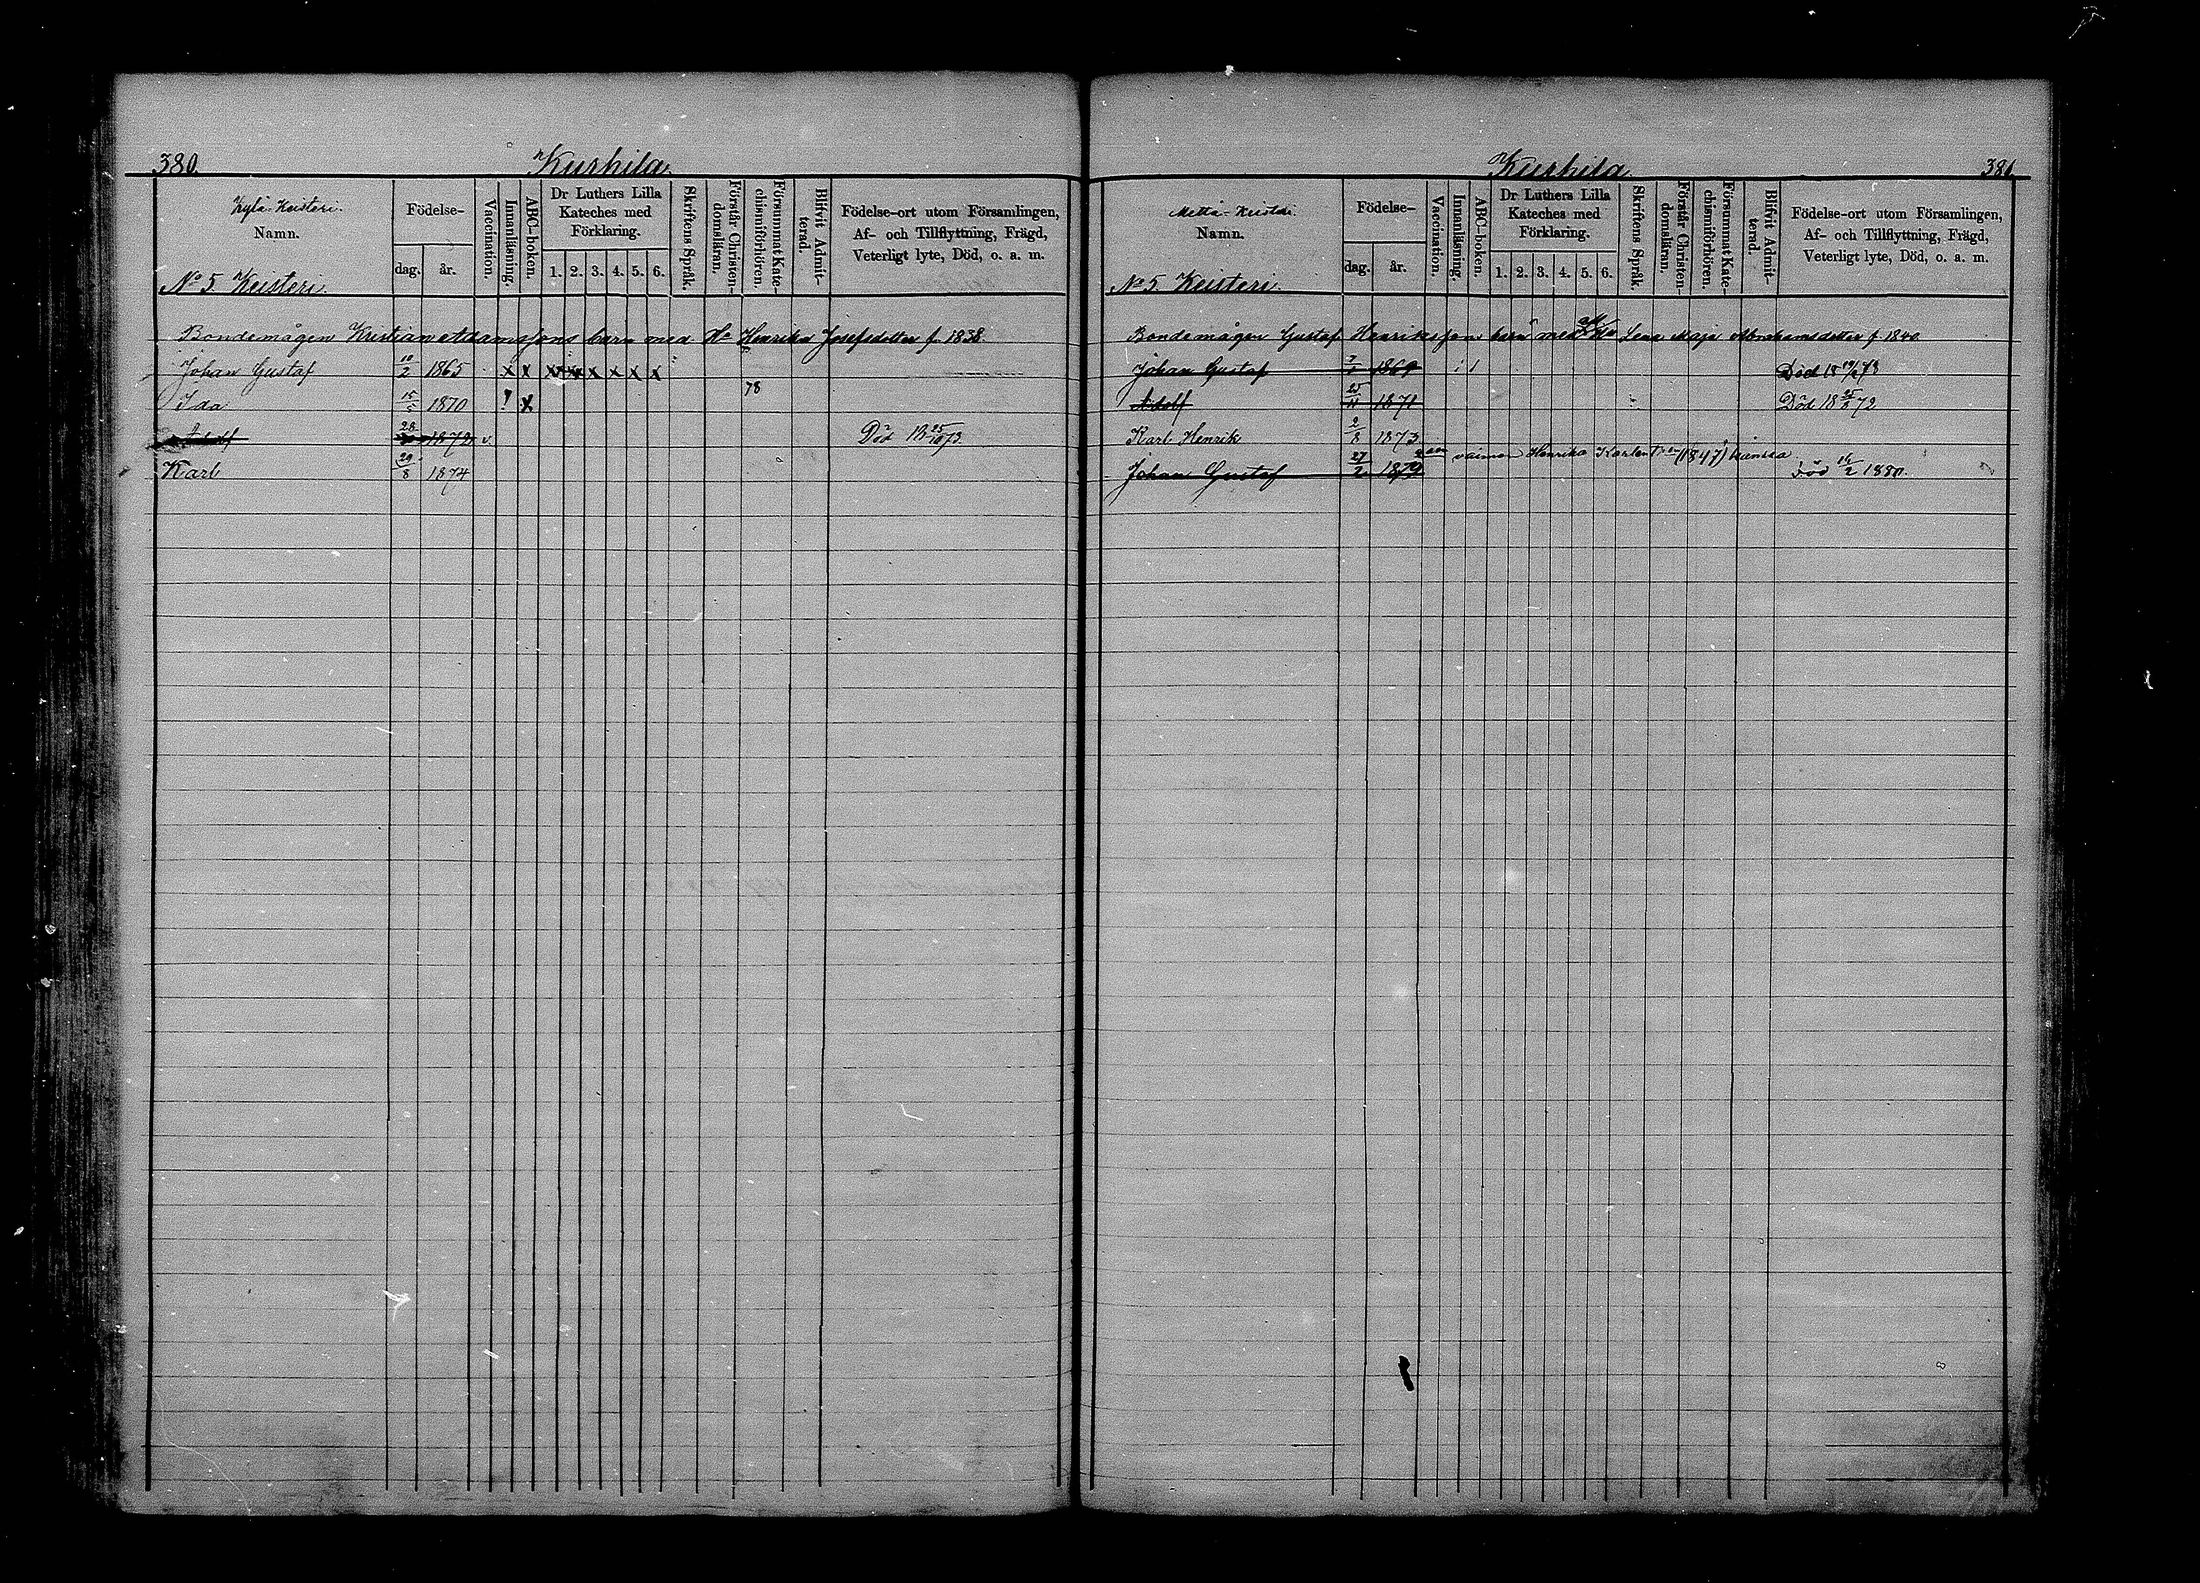 380.
Kurhila.
Kylä-Keisteri.
Namn.
No 5. Keisteri.
Födelse-
dag.
år.
Vaccination.
Innanläsning.
ABC-boken.
Dr Luthers Lilla
Kateches med
Förklaring.
1. 2. 3. 4. 5. 6.
Skriftens Språk.
Förstår Christen-
domsläran.
Försummat Kate-
chismiförhören.
Blifvit Admit-
terad.
Födelse-ort utom Församlingen,
Af- och Tillflyttning, Frägd,
Veterligt lyte, Död, o. a. m.
Bondemågen Kristian Adamssons barn med Ha Henrika Josefsdotter f. 1838.
Johan Gustaf 10/2 1865 x x x x x x x x
78
Ida 15/5 1870 x
Adolf 28 1872 v. Död 18 25/10 73
Karl 29/8 1874
Kurhila
381
Mettä-Keisteri.
Namn.
No 5. Keisteri.
Födelse-
dag.
år.
Vaccination.
Innanläsning.
ABC-boken.
Dr Luthers Lilla
Kateches med
Förklaring.
1. 2. 3. 4. 5. 6.
Skriftens Språk.
Förstår Christen-
domsläran.
Försummat Kate-
chismiförhören.
Blifvit Admit-
terad.
Födelse-ort utom Församlingen,
Af- och Tillflyttning, Frägd,
Veterligt lyte, Död, o. a. m.
Bondemågen Gustaf Henrikssons barn med Lena Maja Abrahamsdotter f 1840
Johan Gustaf 1869 Död 18 73
Adolf 25/11 1871 Död 18 72
Karl Henrik 2/8 1873
2sen vaimon Henrika Karlent. (1847) kanssa
Johan Gustaf 27/2 1879 Död 1880.